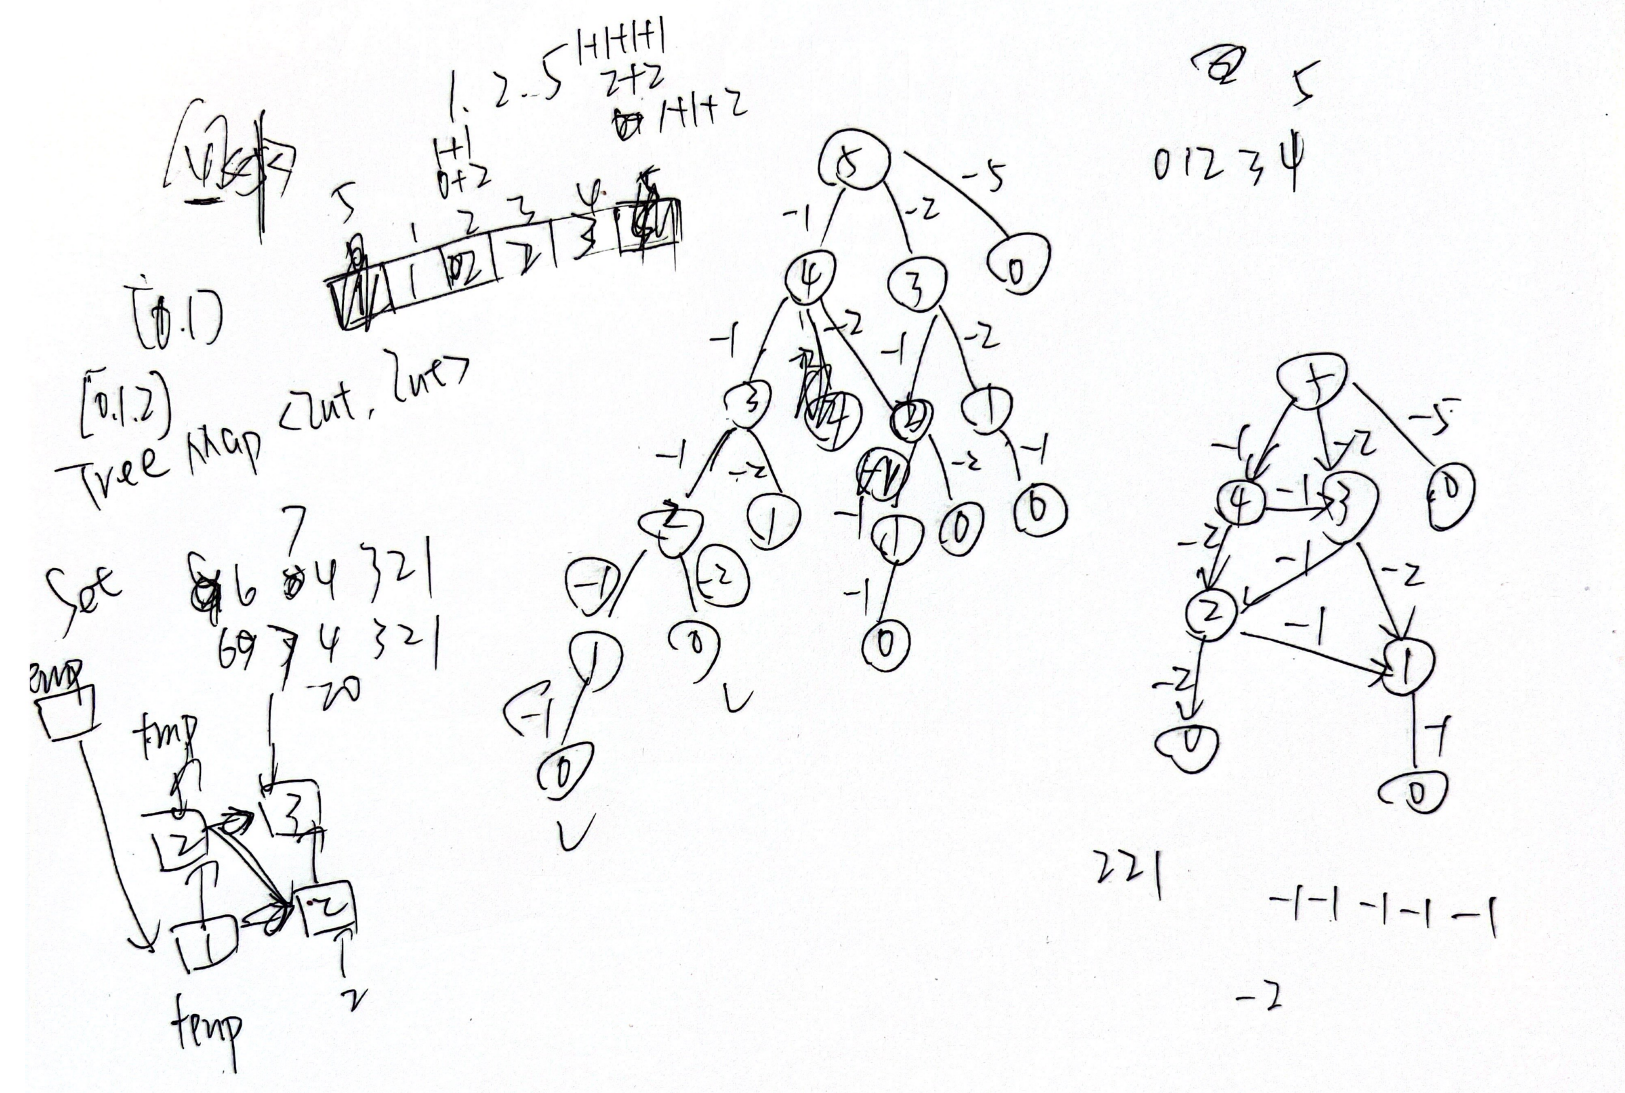 1. 2..5
1+1+1+1
2+2
1+1+2
1+1
0+2
5
1 2 3 4 5
1 2 2 3
[0.1)
[0.1.2)
Tree Map <Int, Int>
Set
7
6 4 3 2 1
69 7 4 3 2 1
-20
temp
tmp
2
3
1
2
temp
2
5
-1 -2 -5
4 3 0
-1 -2 -1 -2
3 2 1
-1 -2 -1 -2 -1
2 1 1 0 0
-1 -2 -1
1 0 0
-1
0
5
0 1 2 3 4
5
-1 -2 -5
4 -1 3 0
-2 -1 -2
2 -1 1
-2 -1
0 0
2 2 1
-1 -1 -1 -1 -1
-2